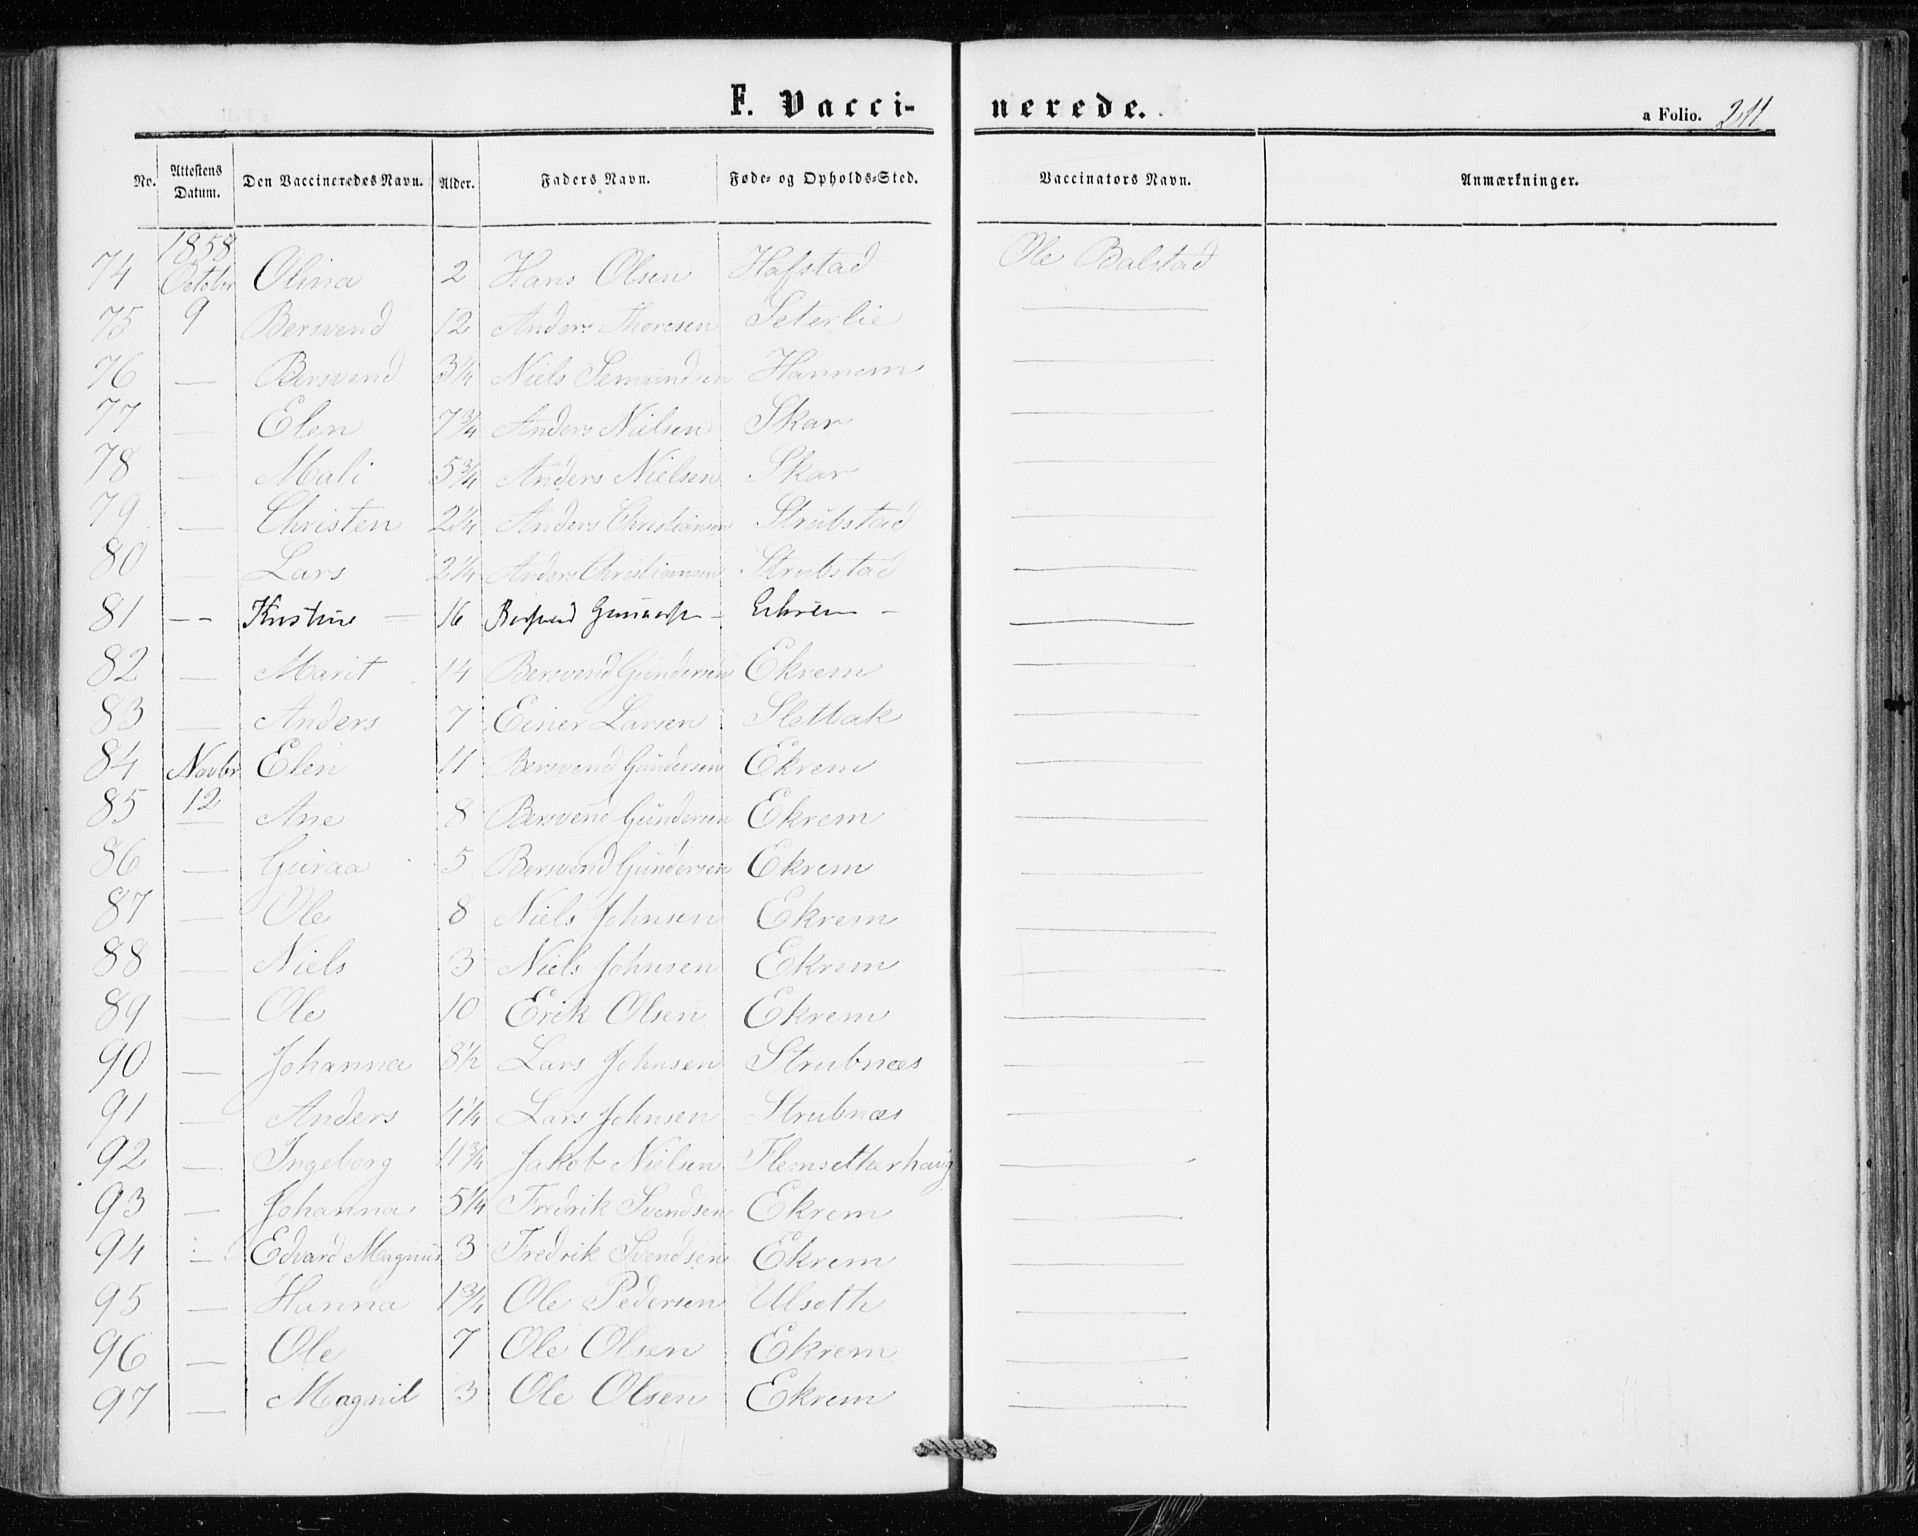 F. Vacci- nerede. a Folio. 211
No. Attestens Datum. Den Vaccineredes Navn. Alder. Faders Navn. Føde- og Opholds-Sted. Vaccinators Navn. Anmærkninger.
1858
74 Octobr Olina 2 Hans Olsen Hafstad Ole Balstad
75 9 Bersvend 12 Anders Thoresen Seterlie —
76 — Bersvend 3 1/4 Niels Semundsen Hannem —
77 — Elen 7 3/4 Anders Nielsen Skar —
78 — Mali 5 3/4 Anders Nielsen Skar —
79 — Christen 2 1/4 Anders Christiansen Strubstad —
80 — Lars 2 1/4 Anders Christiansen Strubstad —
81 -- Kristine — 16 —
82 — Marit 14 Bersvend Gundersen Ekrem —
83 — Anders 7 Einer Larsen Slettvak —
84 Novbr Elen 11 Bersvend Gundersen Ekrem —
85 12 Ane 8 Bersvend Gundersen Ekrem —
86 — Guraa 5 Bersvend Gundersen Ekrem —
87 — Ole 8 Niels Johnsen Ekrem —
88 — Niels 3 Niels Johnsen Ekrem —
89 — Ole 10 Erik Olsen Ekrem —
90 — Johanna 8 1/2 Lars Johnsen Strubnæs —
91 — Anders 4 1/4 Lars Johnsen Strubnæs —
92 — Ingeborg 11 3/4 Jakob Nielsen Flemsetherhaug —
93 — Johanna 5 1/4 Fredrik Svendsen Ekrem —
94 — Edvard Magnus 3 Fredrik Svendsen Ekrem —
95 — Hanna 1 3/4 Ole Pedersen Ulseth —
96 — Ole 7 Ole Olsen Ekrem —
97 — Magnil 3 Ole Olsen Ekrem —